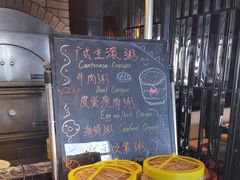 广式生滚粥
Cantonese Congee
牛肉粥
Beef Congee
皮蛋瘦肉粥
Egg and Pork Congee
海鲜粥 Seafood Congee